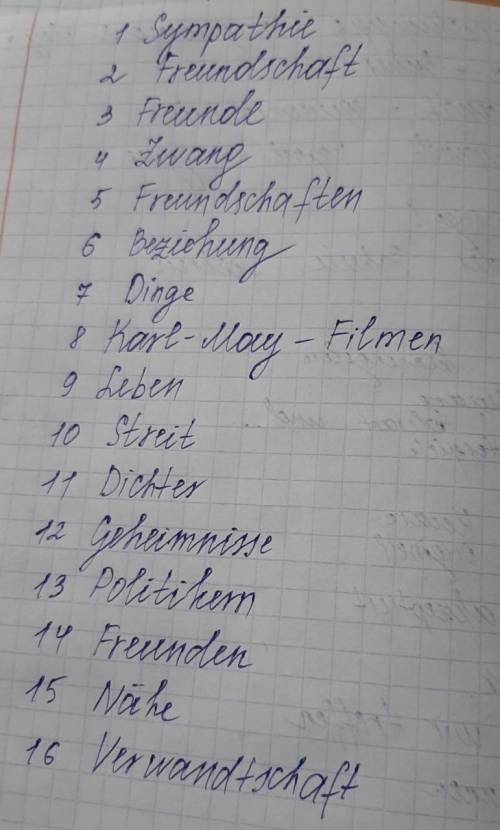 1 Sympathie
2 Freundschaft
3 Freunde
4 Zwang
5 Freundschaften
6 Beziehung
7 Dinge
8 Karl-May-Filmen
9 Leben
10 Streit
11 Dichter
12 Geheimnisse
13 Politikern
14 Freunden
15 Nähe
16 Verwandtschaft